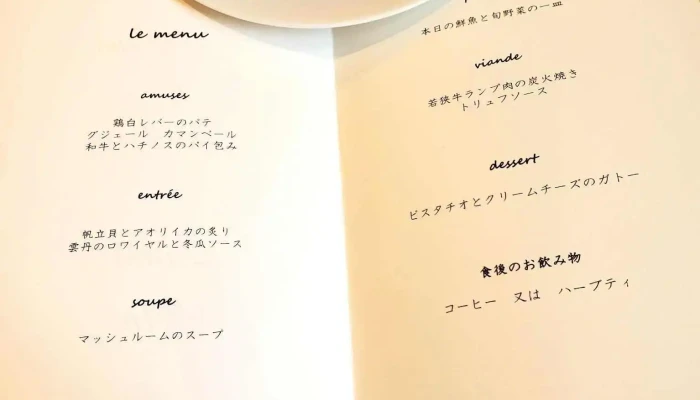 le menu
amuses
鶏白レバーのパテ
グジェール カマンベール
和牛とハチノスのパイ包み
entrée
帆立貝とアオリイカの炙り
雲丹のロワイヤルと冬瓜ソース
soupe
マッシュルームのスープ
本日の鮮魚と旬野菜の一皿
viande
若狭牛ランプ肉の炭火焼き
トリュフソース
dessert
ピスタチオとクリームチーズのガトー
食後のお飲み物
コーヒー 又は ハーブティ